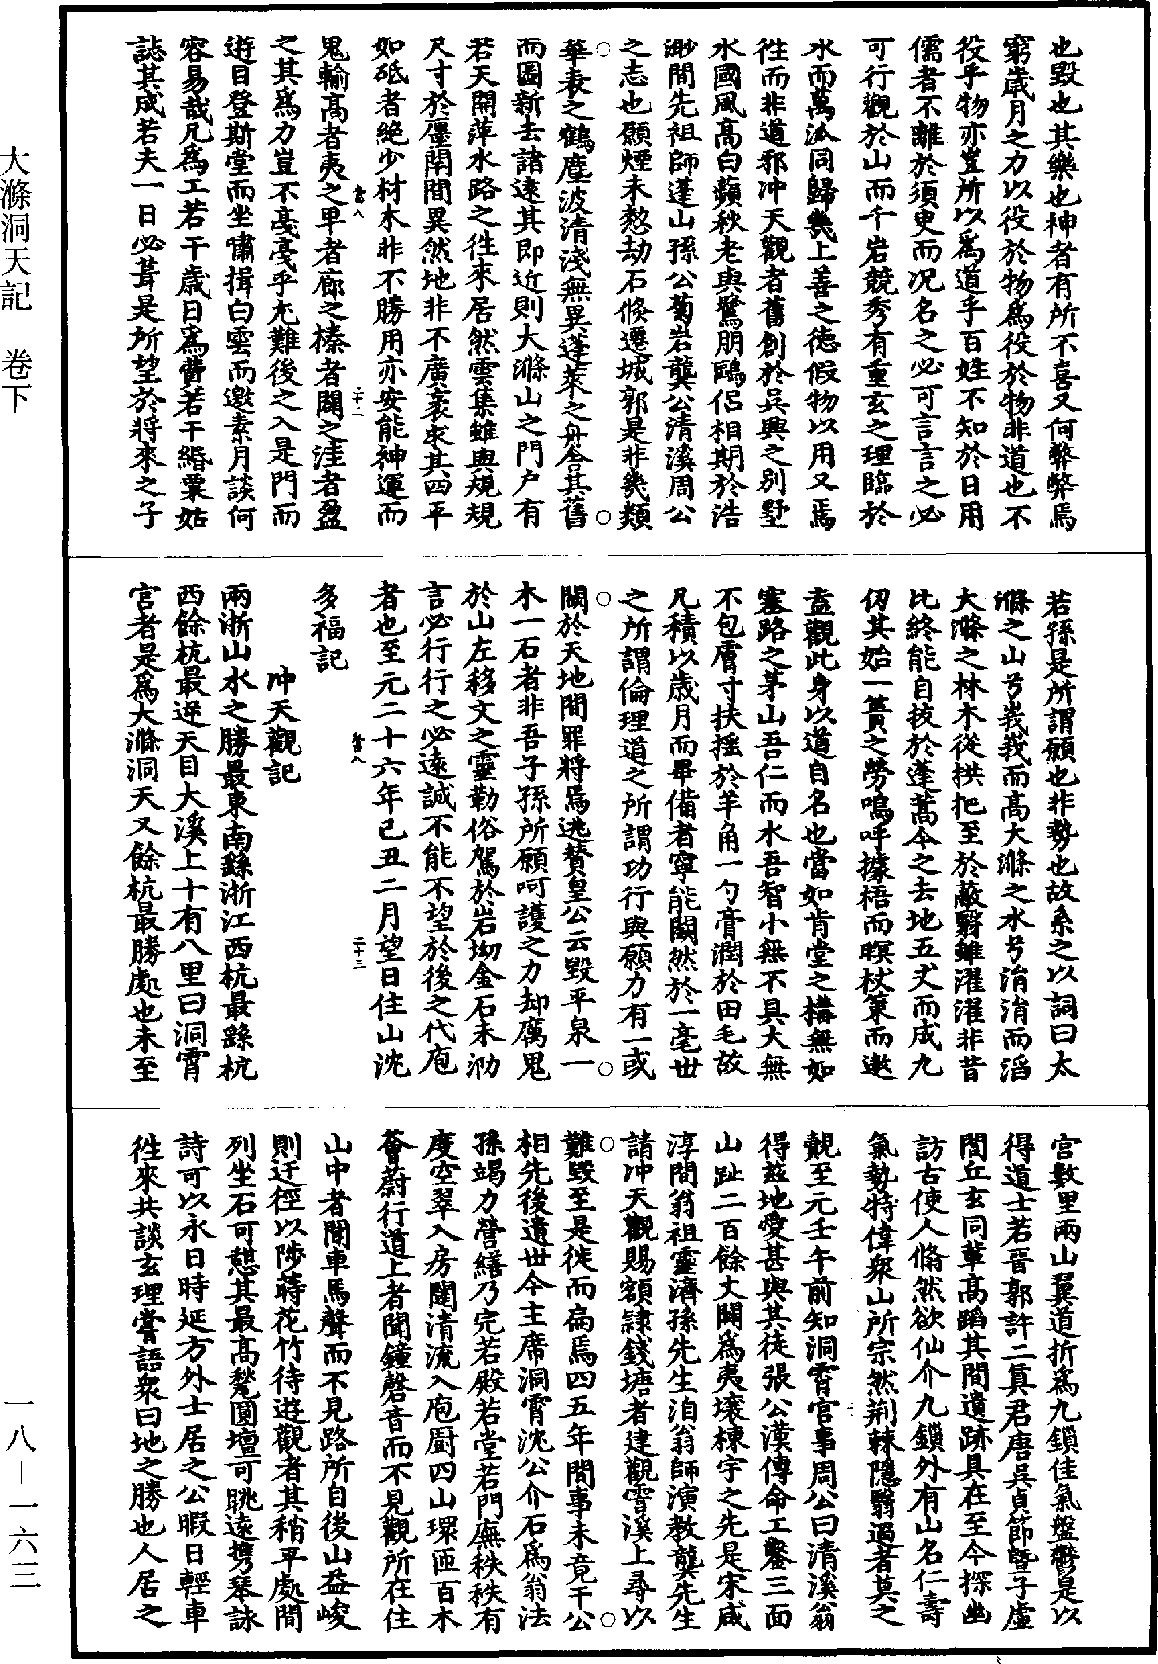 也毀也其樂也神者有所不喜又何弊弊焉
窮歲月之力以役於物爲役於物非道也不
役乎物亦豈所以爲道乎百姓不知於日用
儒者不離於須臾而况名之必可言言之必
可行觀於山而千岩競秀有重玄之理臨於
水而萬派同歸幾上善之德假物以用又焉
徃而非道邪冲天觀者舊創於吳興之別墅
水國風高白蘋秋老與鷺朋鷗侶相期於浩
渺間先祖師蓬山孫公菊岩龔公清溪周公
之志也願煙未愁劫石倏遷城郭是非幾類
華表之鶴塵波清淺無異蓬萊之舟舍其舊
而圖新去諸遠其即近則大滌山之門户有
若天開萍水路之徃來居然雲集雖與規規
尺寸於廛閈間異然地非不廣袤求其四平
如砥者絶少材木非不勝用亦安能神運而
鬼輸高者夷之卑者廊之榛者闢之洼者盈
之其爲力豈不戞戞乎尤難後之入是門而
遊目登斯堂而坐嘯揖白雲而邀素月談何
容易哉凡爲工若干歲日爲費若干緡粟姑
誌其成若夫一日必葺是所望於將來之子
若孫是所謂願也非勢也故系之以詞曰太
滌之山兮峩峩而高大滌之水兮涓涓而滔
大滌之林木從拱把至於蔽翳雖濯濯非昔
比終能自抜於蓬蒿今之去地五丈而成九
仞其始一簣之勞嗚呼據梧而瞑杖策而遨
盍觀此身以道自名也當如肯堂之構無如
塞路之茅山吾仁而水吾智小無不具大無
不包膚寸扶摇於羊角一勺膏潤於田毛故
凡積以歲月而畢備者寧能闕然於一毫世
之所謂倫理道之所謂功行與願力有一或
闕於天地間罪將焉逃贊皇公云毀平泉一
木一石者非吾子孫所願呵護之力却厲鬼
於山左移文之靈勒俗駕於岩坳金石未泐
言必行行之必遠誠不能不望於後之代庖
者也至元二十六年已丑二月望日住山沈
多福記
冲天觀記
兩浙山水之勝最東南繇浙江西杭最繇杭
西餘杭最逆天目大溪上十有八里曰洞霄
宮者是爲大滌洞天又餘杭最勝處也未至
宮數里兩山翼道折爲九鎖佳氣盤鬱是以
得道士若晉郭許二真君唐吳貞節暨子虛
閭丘玄同輩高蹈其間遺跡具在至今探幽
訪古使人翛然欲仙介九鎖外有山名仁壽
氣勢特偉衆山所宗然荆棘隱翳過者莫之
覿至元壬午前知洞霄宮事周公曰清溪翁
得兹地愛甚與其徒張公漢傳命工鑿三面
山趾二百餘丈闢爲夷壤棟宇之先是宋咸
淳間翁祖靈濟孫先生洎翁師演教龔先生
請冲天觀賜額隷錢塘者建觀霅溪上尋以
難毀至是徙而扁焉四五年間事未竟干公
相先後遺世今主席洞霄沈公介石爲翁法
孫竭力營繕乃完若殿若堂若門廡秩秩有
度空翠入房闥清流入庖厨四山環匝百木
薈蔚行道上者聞鐘磬音而不見觀所在住
山中者聞車馬聲而不見路所自後山益峻
則迂徑以陟蒔花竹待遊觀者其稍平處間
列坐石可憩其最高甃圜壇可眺遠携琴詠
詩可以永日時延方外士居之公暇日輕車
徃來共談玄理嘗語衆曰地之勝也人居之
大滌洞天記　卷下
一八—一六三